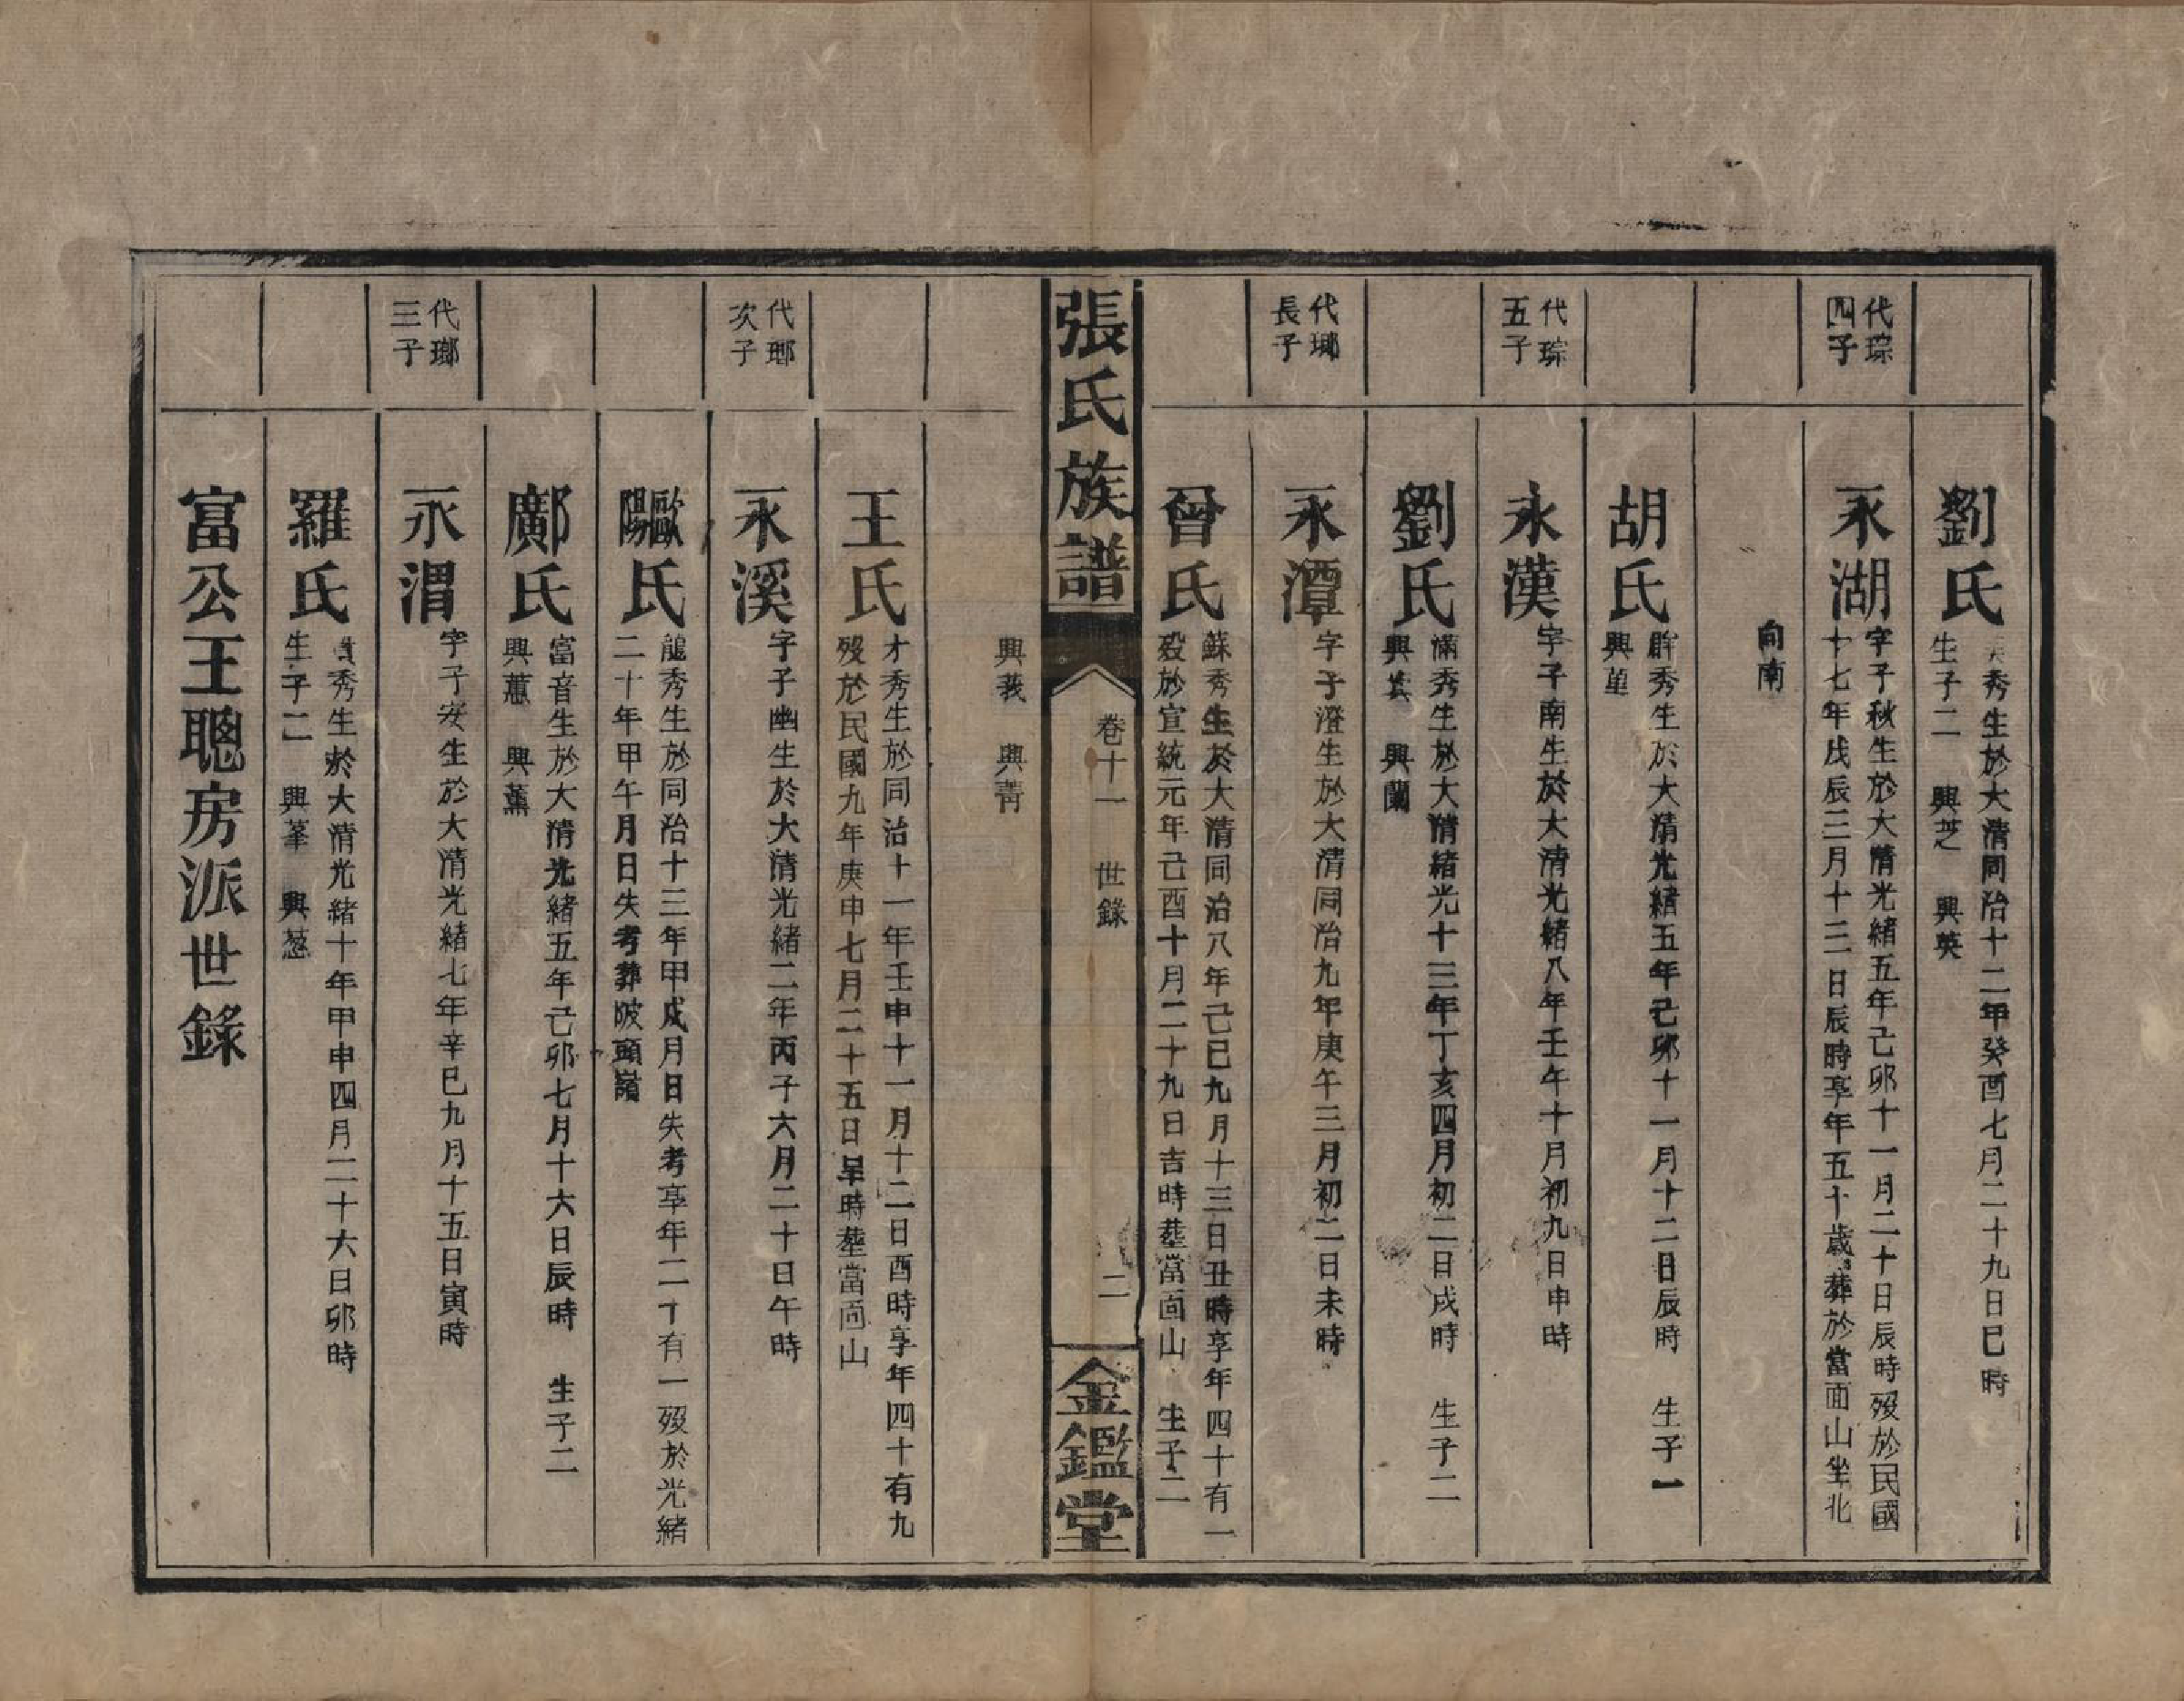 劉氏
秀生於大清同治十二年癸酉七月二十九日巳時
生子二　興芝　興英
代琮
四子
永湖
字子秋生於大清光緒五年己卯十一月二十日辰時歿於民國
十七年戊辰三月十三日辰時享年五十歲葬於當面山坐北
向南
胡氏
辥秀生於大清光緒五年己卯十一月十二日辰時　生子一
興䓶
代琮
五子
永漢
字子南生於大清光緒八年壬午十月初九日申時
劉氏
滿秀生於大清緒光十三年丁亥四月初二日戌時　生子二
興芸　興蘭
代瑯
長子
永潭
字子澄生於大清同治九年庚午三月初二日未時
曾氏
蘇秀生於大清同治八年己巳九月十三日丑時享年四十有一
歿於宣統元年己酉十月二十九日吉時塟當面山　生子二
張氏族譜
卷十一　世錄
二
金鑑堂
興莪　興菁
王氏
才秀生於同治十一年壬申十一月十二日酉時享年四十有九
歿於民國九年庚申七月二十五日早時塟當面山
代瑯
次子
永溪
字子幽生於大清光緒二年丙子六月二十日午時
歐陽氏
龍秀生於同治十三年甲戌月日失考享年二十有一歿於光緒
二十年甲午月日失考葬陂頭嶺
鄺氏
富音生於大清光緒五年己卯七月十六日辰時　生子二
興蕙　興薰
代瑯
三子
永渭
字子安生於大清光緒七年辛巳九月十五日寅時
羅氏
秀生於大清光緒十年甲申四月二十六日卯時
生子二　興菶　興葱
富公王聰房派世錄